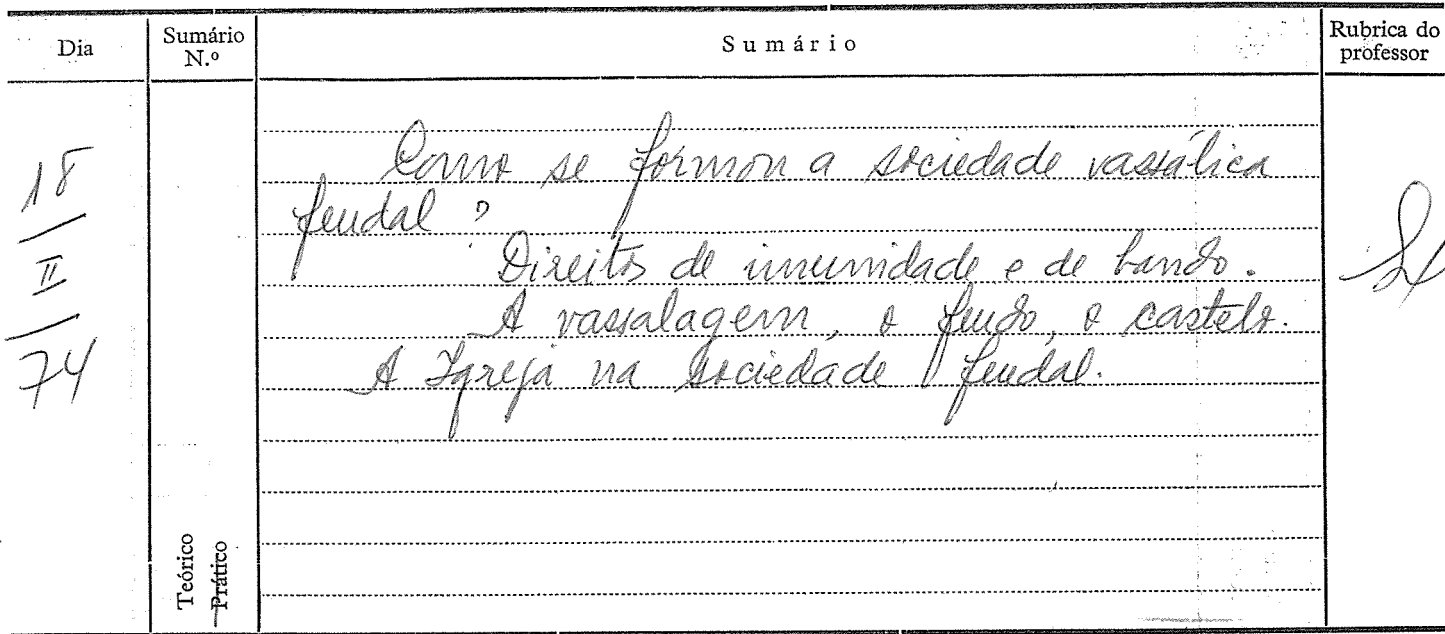 Dia
Sumário N.º
Sumário
Rubrica do professor
18
II
74
Como se formou a sociedade vassálica
feudal?
Direitos de imunidade e de bando.
A vassalagem, o feudo, o castelo.
A Igreja na Sociedade feudal.
Teórico
Prático